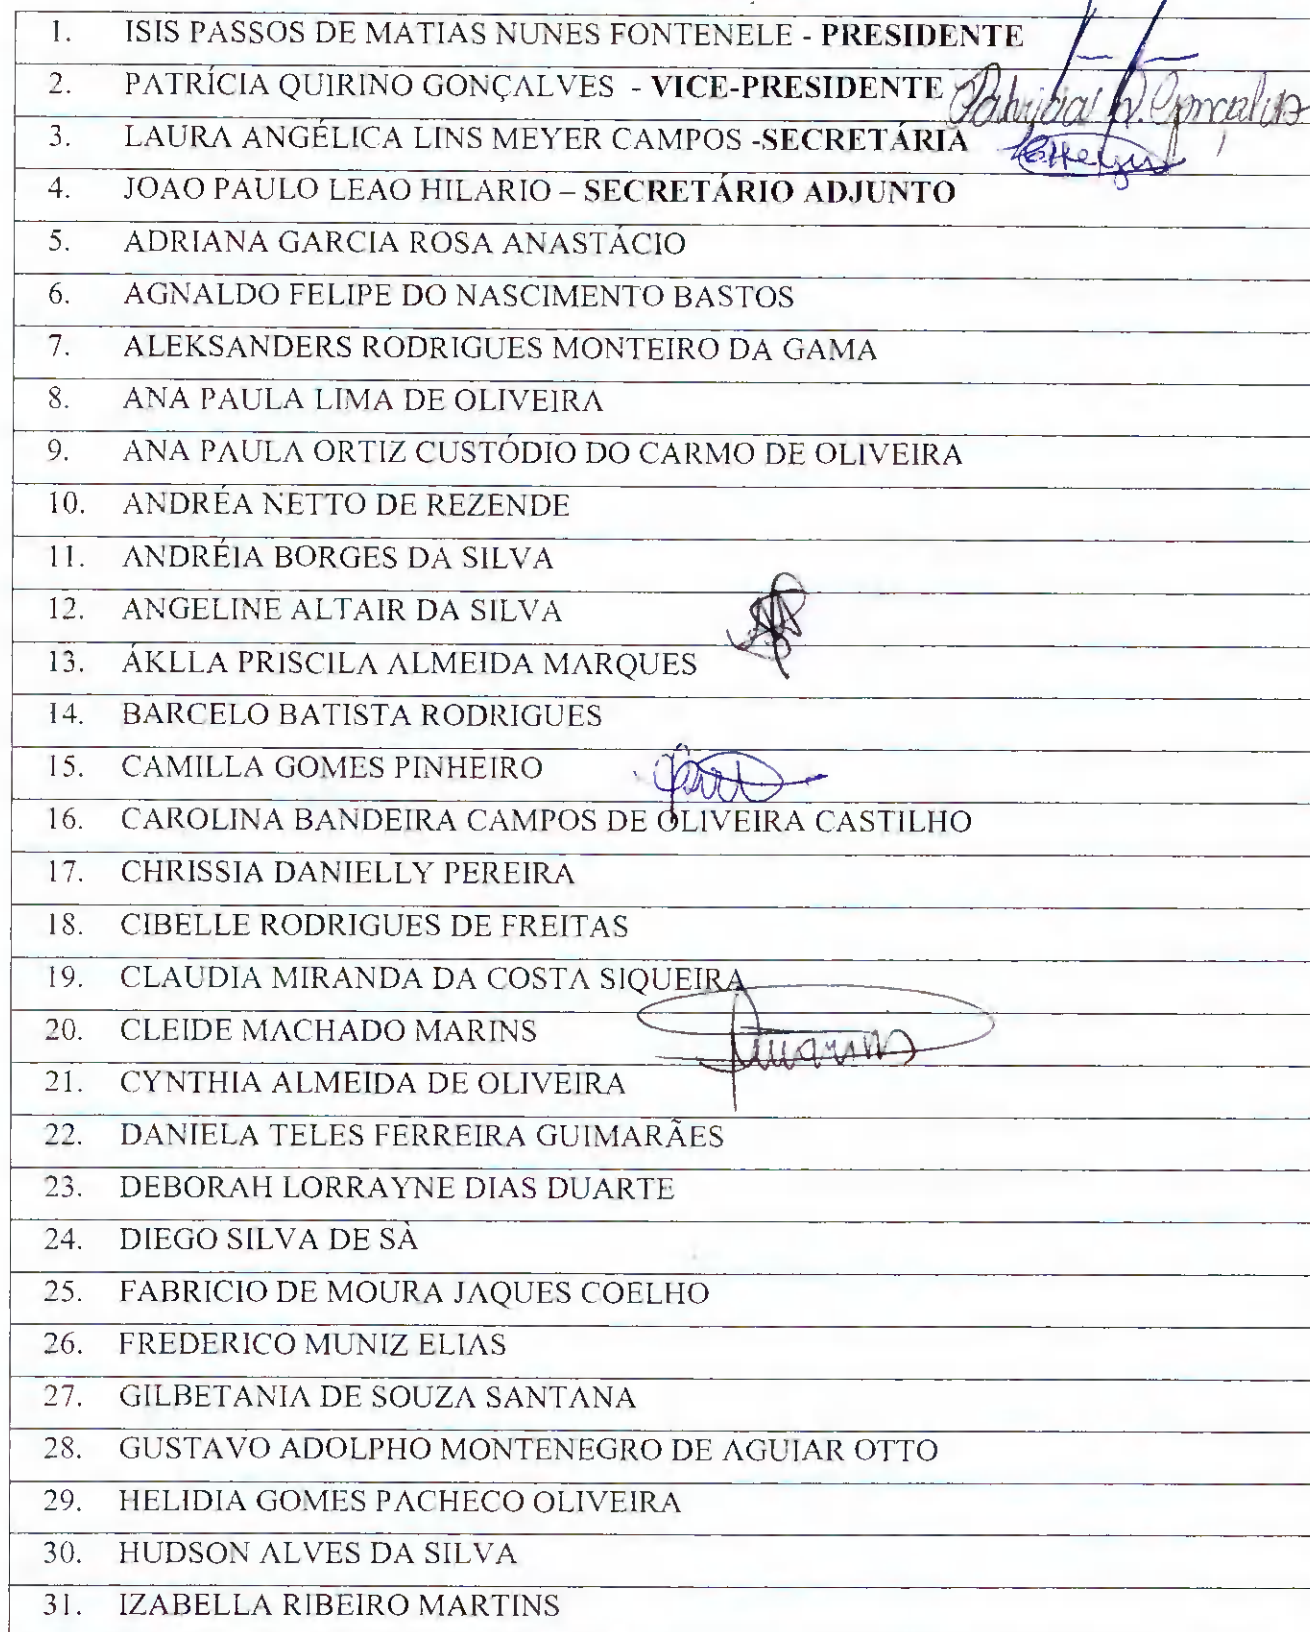 1. ISIS PASSOS DE MATIAS NUNES FONTENELE - PRESIDENTE
2. PATRÍCIA QUIRINO GONÇALVES - VICE-PRESIDENTE Patrícia Q. Gonçalves
3. LAURA ANGÉLICA LINS MEYER CAMPOS -SECRETÁRIA
4. JOAO PAULO LEAO HILARIO – SECRETÁRIO ADJUNTO
5. ADRIANA GARCIA ROSA ANASTÁCIO
6. AGNALDO FELIPE DO NASCIMENTO BASTOS
7. ALEKSANDERS RODRIGUES MONTEIRO DA GAMA
8. ANA PAULA LIMA DE OLIVEIRA
9. ANA PAULA ORTIZ CUSTÓDIO DO CARMO DE OLIVEIRA
10. ANDRÉA NETTO DE REZENDE
11. ANDRÉIA BORGES DA SILVA
12. ANGELINE ALTAIR DA SILVA
13. ÁKLLA PRISCILA ALMEIDA MARQUES
14. BARCELO BATISTA RODRIGUES
15. CAMILLA GOMES PINHEIRO
16. CAROLINA BANDEIRA CAMPOS DE OLIVEIRA CASTILHO
17. CHRISSIA DANIELLY PEREIRA
18. CIBELLE RODRIGUES DE FREITAS
19. CLAUDIA MIRANDA DA COSTA SIQUEIRA
20. CLEIDE MACHADO MARINS
21. CYNTHIA ALMEIDA DE OLIVEIRA
22. DANIELA TELES FERREIRA GUIMARÃES
23. DEBORAH LORRAYNE DIAS DUARTE
24. DIEGO SILVA DE SÀ
25. FABRICIO DE MOURA JAQUES COELHO
26. FREDERICO MUNIZ ELIAS
27. GILBETANIA DE SOUZA SANTANA
28. GUSTAVO ADOLPHO MONTENEGRO DE AGUIAR OTTO
29. HELIDIA GOMES PACHECO OLIVEIRA
30. HUDSON ALVES DA SILVA
31. IZABELLA RIBEIRO MARTINS